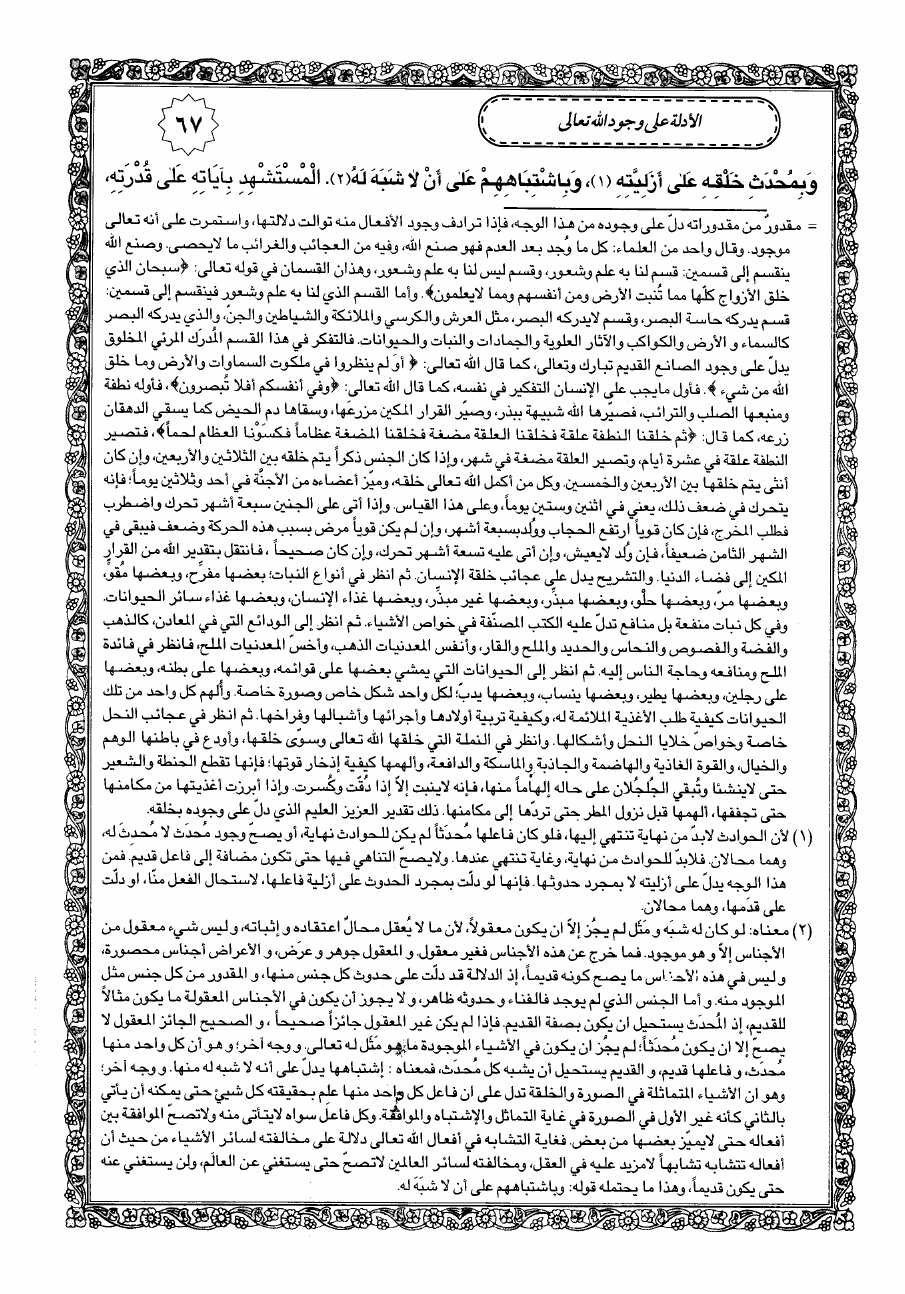 الأدلة على وجود الله تعالى
٦٧
وَبِمُحْدَثِ خَلْقِهِ عَلَىٰ أَزَلِيَّتِهِ (١)، وَبِاشْتِبَاهِهِمْ عَلَىٰ أَنْ لَا شَبَهَ لَهُ(٢). الْمُسْتَشْهِدِ بِآيَاتِهِ عَلَىٰ قُدْرَتِهِ،
= مقدورٌ من مقدوراته دلّ على وجوده من هذا الوجه، فإذا ترادف وجود الأفعال منه توالت دلالتها، واستمرت على أنه تعالى
موجود. وقال واحد من العلماء: كل ما وُجد بعد العدم فهو صنع الله، وفيه من العجائب والغرائب ما لايحصى. وصنع الله
ينقسم إلى قسمين: قسم لنا به علم وشعور، وقسم ليس لنا به علم وشعور، وهذان القسمان في قوله تعالى: ﴿سبحان الذي
خلق الأزواج كلّها مما تُنبت الأرض ومن أنفسهم ومما لايعلمون﴾. وأما القسم الذي لنا به علم وشعور فينقسم إلى قسمين:
قسم يدركه حاسة البصر، وقسم لايدركه البصر، مثل العرش والكرسي والملائكة والشياطين والجن، والذي يدركه البصر
كالسماء و الأرض والكواكب والآثار العلوية والجمادات والنبات والحيوانات. فالتفكر في هذا القسم المُدرَك المرئي المخلوق
يدلّ على وجود الصانع القديم تبارك وتعالى، كما قال الله تعالى: ﴿ أوَ لم ينظروا في ملكوت السماوات والأرض وما خلق
الله من شيء ﴾. فأول مايجب على الإنسان التفكير في نفسه، كما قال الله تعالى: ﴿وفي أنفسكم أفلا تُبصرون﴾، فأوله نطفة
ومنبعها الصلب والترائب، فصيّرها الله شبيهة ببذر، وصيّر القرار المكين مزرعها، وسقاها دم الحيض كما يسقي الدهقان
زرعه، كما قال: ﴿ثم خلقنا النطفة علقة فخلقنا العلقة مضغة فخلقنا المضغة عظاماً فكسَوْنا العظام لحماً﴾، فتصير
النطفة علقة في عشرة أيام، وتصير العلقة مضغة في شهر، وإذا كان الجنس ذكراً يتم خلقه بين الثلاثين والأربعين، وإن كان
أنثى يتم خلقها بين الأربعين والخمسين. وكل من أكمل الله تعالى خلقه، وميّز أعضاءه من الأجنّة في أحد وثلاثين يوماً؛ فإنه
يتحرك في ضعف ذلك، يعني في اثنين وستين يوماً، وعلى هذا القياس. وإذا أتى على الجنين سبعة أشهر تحرك واضطرب
فطلب المخرج، فإن كان قوياً ارتفع الحجاب ووُلدبسبعة أشهر، وإن لم يكن قوياً مرض بسبب هذه الحركة وضعف فيبقى في
الشهر الثامن ضعيفاً، فإن وُلد لايعيش، وإن أتى عليه تسعة أشهر تحرك، وإن كان صحيحاً ، فانتقل بتقدير الله من القرار
المكين إلى فضاء الدنيا. والتشريح يدل على عجائب خلقة الإنسان. ثم انظر في أنواع النبات؛ بعضها مفرّح، وبعضها مُقوٍّ،
وبعضها مرّ، وبعضها حلْو، وبعضها مبذّر، وبعضها غير مبذّر، وبعضها غذاء الإنسان، وبعضها غذاء سائر الحيوانات.
وفي كل نبات منفعة بل منافع تدلّ عليه الكتب المصنّفة في خواص الأشياء. ثم انظر إلى الودائع التي في المعادن، كالذهب
والفضة والفصوص والنحاس والحديد والملح والقار، وأنفس المعدنيات الذهب، وأخسّ المعدنيات الملح، فانظر في فائدة
الملح ومنافعه وحاجة الناس إليه. ثم انظر إلى الحيوانات التي يمشي بعضها على قوائمه، وبعضها على بطنه، وبعضها
على رجلين، وبعضها يطير، وبعضها ينساب، وبعضها يدبّ؛ لكل واحد شكل خاص وصورة خاصة. وأُلهم كل واحد من تلك
الحيوانات كيفية طلب الأغذية الملائمة له، وكيفية تربية أولادها وأجرائها وأشبالها وفراخها. ثم انظر في عجائب النحل
خاصة وخواصّ خلايا النحل وأشكالها. وانظر في النملة التي خلقها الله تعالى وسوّى خلقها، وأودع في باطنها الوهم
والخيال، والقوة الغاذية والهاضمة والجاذبة والماسكة والدافعة، وألهمها كيفية إذخار قوتها؛ فإنها تقطع الحنطة والشعير
حتى لاينشئا وتُبقي الجُلجُلان على حاله إلهاماً منها، فإنه لاينبت إلاّ إذا دُقّت وكُسرت. وإذا أبرزت أغذيتها من مكامنها
حتى تجففها، ألهمها قبل نزول المطر حتى تردّها إلى مكامنها. ذلك تقدير العزيز العليم الذي دلّ على وجوده بخلقه.
(١) لأن الحوادث لابدّ من نهاية تنتهي إليها، فلو كان فاعلها مُحدَثاً لم يكن للحوادث نهاية، أو يصح وجود مُحدَث لا مُحدِثَ له،
وهما محالان. فلابدّ للحوادث من نهاية، وغاية تنتهي عندها. ولايصحّ التناهي فيها حتى تكون مضافة إلى فاعل قديم. فمن
هذا الوجه يدلّ على أزليته لا بمجرد حدوثها. فإنها لو دلّت بمجرد الحدوث على أزلية فاعلها، لاستحال الفعل منّا، او دلّت
على قدَمها، وهما محالان.
(٢) معناه: لو كان له شبَه و مَثَل لم يجُز إلاّ ان يكون معقولاً، لأن ما لا يُعقل محالٌ اعتقاده و إثباته، و ليس شيء معقول من
الأجناس إلاّ و هو موجود. فما خرج عن هذه الأجناس فغير معقول. و المعقول جوهر و عرَض، و الأعراض أجناس محصورة،
و ليس في هذه الأجناس ما يصح كونه قديماً، إذ الدلالة قد دلّت على حدوث كل جنس منها، و المقدور من كل جنس مثل
الموجود منه. و أما الجنس الذي لم يوجد فالفناء و حدوثه ظاهر، و لا يجوز أن يكون في الأجناس المعقولة ما يكون مثالاً
للقديم، إذ المُحدَث يستحيل ان يكون بصفة القديم. فإذا لم يكن غير المعقول جائزاً صحيحاً ، و الصحيح الجائز المعقول لا
يصحّ إلا ان يكون مُحدَثاً؛ لم يجُز ان يكون في الأشياء الموجودة ما هو مَثَل له تعالى. و وجه آخر؛ و هو أن كل واحد منها
مُحدَث، و فاعلها قديم، و القديم يستحيل أن يشبه كل مُحدَث، فمعناه : إشتباهها يدلّ على أنه لا شبه له منها. و وجه آخر؛
وهو ان الأشياء المتماثلة في الصورة والخلقة تدل على ان فاعل كل واحد منها علم بحقيقته كل شيئ حتى يمكنه أن يأتي
بالثاني كأنه غير الأول في الصورة في غاية التماثل والإشتباه والموافقة. وكل فاعل سواه لايتأتى منه ولاتصحّ الموافقة بين
أفعاله حتى لايميّز بعضها من بعض. فغاية التشابه في أفعال الله تعالى دلالة على مخالفته لسائر الأشياء من حيث أن
أفعاله تتشابه تشابهاً لامزيد عليه في العقل، ومخالفته لسائر العالمين لاتصحّ حتى يستغني عن العالَم، ولن يستغني عنه
حتى يكون قديماً، وهذا ما يحتمله قوله: وباشتباههم على أن لا شبَهَ له.